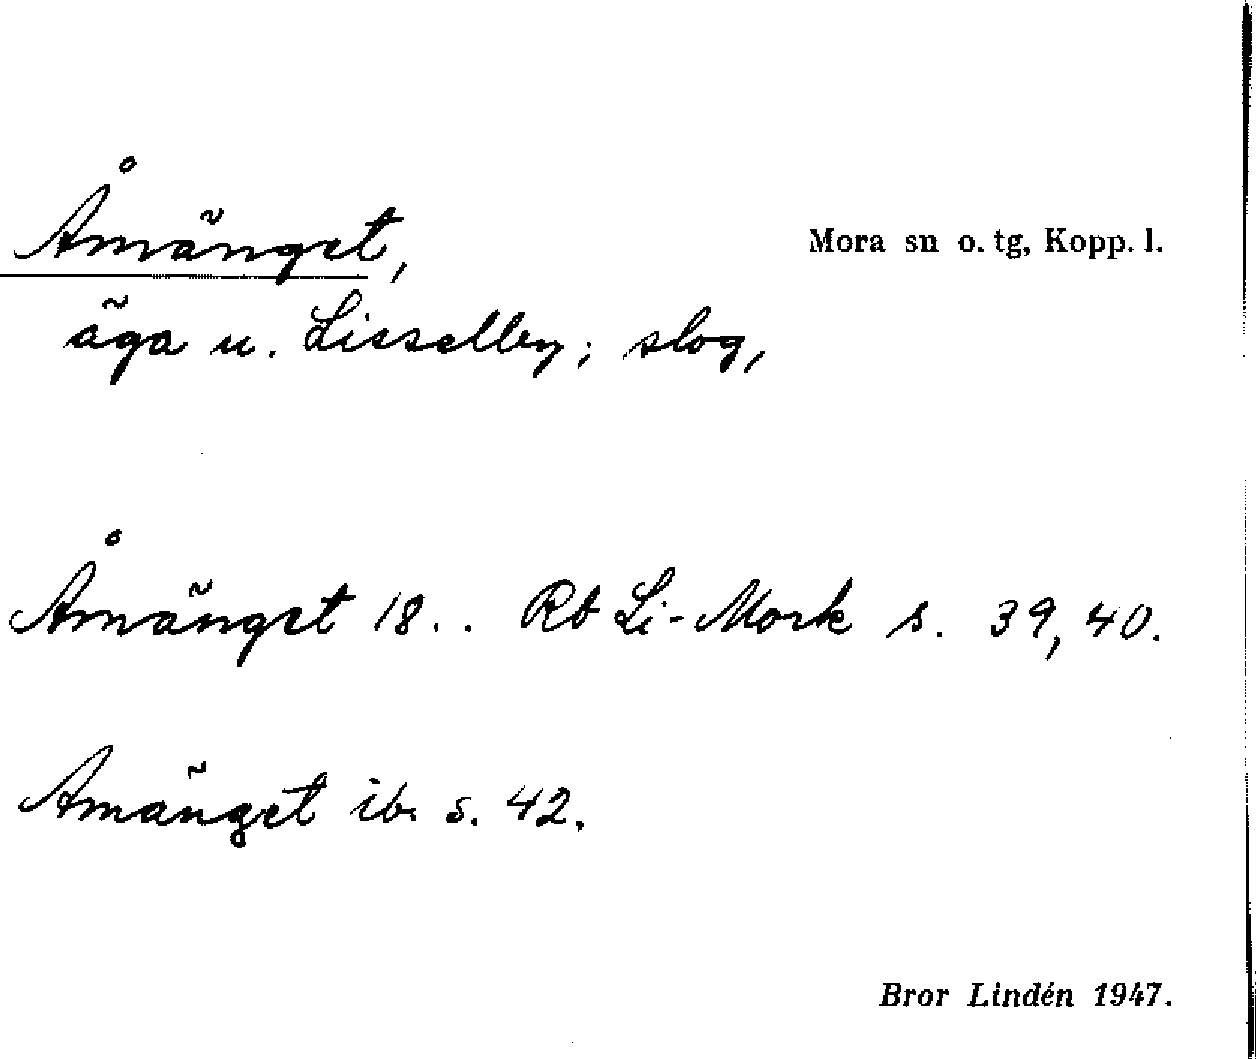 Åmänget,
Mora sn o. tg, Kopp. l.
äga u. Lisselby; slog,
Åmänget 18.. Rb Li-Mork s. 39, 40.
Amänget ib. s. 42.
Bror Lindén 1947.